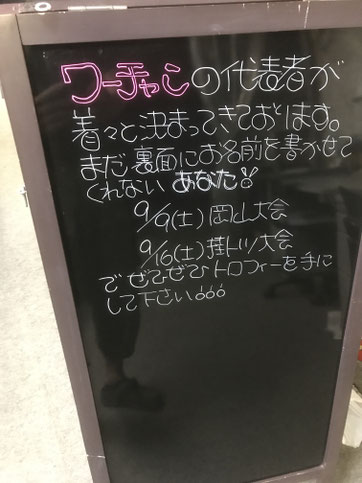 ワーチャンの代表者が
着々と決まってきております。
まだ裏面にお名前を書かせて
くれない あなた!!
9/9(土)岡山大会
9/16(土)掛トツ大会
でぜひぜひトロフィーを手に
して下さい。。。